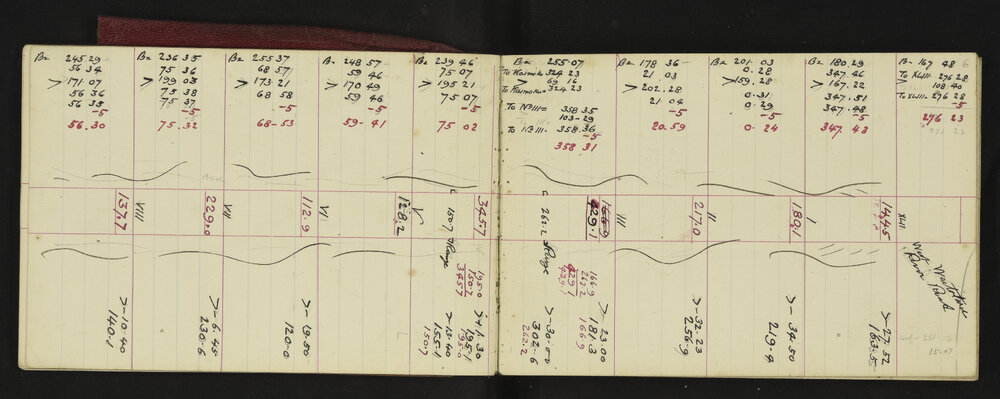 B= 245.29
56 34
> 171 07
56 36
56 35
-5
56.30
B= 236 35
75 36
> 199 03
75 38
75 37
-5
75.32
B= 255 37
68 57
> 173.21
68 58
-5
68-53
B= 248 57
59 46
> 170 49
59 46
-5
59-41
B= 239 46
75 07
> 195 21
75 07
-5
75 02
B= 255 07
324 23
> 69 16
324 23
358 35
103-29
358.36
-5
358 31
B= 178 36
21 03
> 202.28
21 04
-5
20.59
B= 201 03
0.28
> 159.28
0.31
0.29
-5
0.24
B= 180.29
347.46
> 167.22
347.51
347.48
-5
347 43
B= 167 48
To XLIII= 276 28
108 40
To XLIII= 276 28
-5
276 23
137.7
VIII
229.0
VII
112.9
VI
128.2
V
150.7
Range
345.7
262.2
Range
166.9
429.1
III
217.0
II
189.1
I
144.5
XLII
195.0
150.7
345.7
166.9
262.2
429.1
>-10.40
140.1
>-6.45
230.6
>-19.50
120.0
>-13.40
155.1
150.7
>+1.30
195.1
195.0
>-30.00
302.6
262.2
>-23.00
181.3
166.9
>-32.23
256.9
>-34.50
219.4
>-27.52
163.5